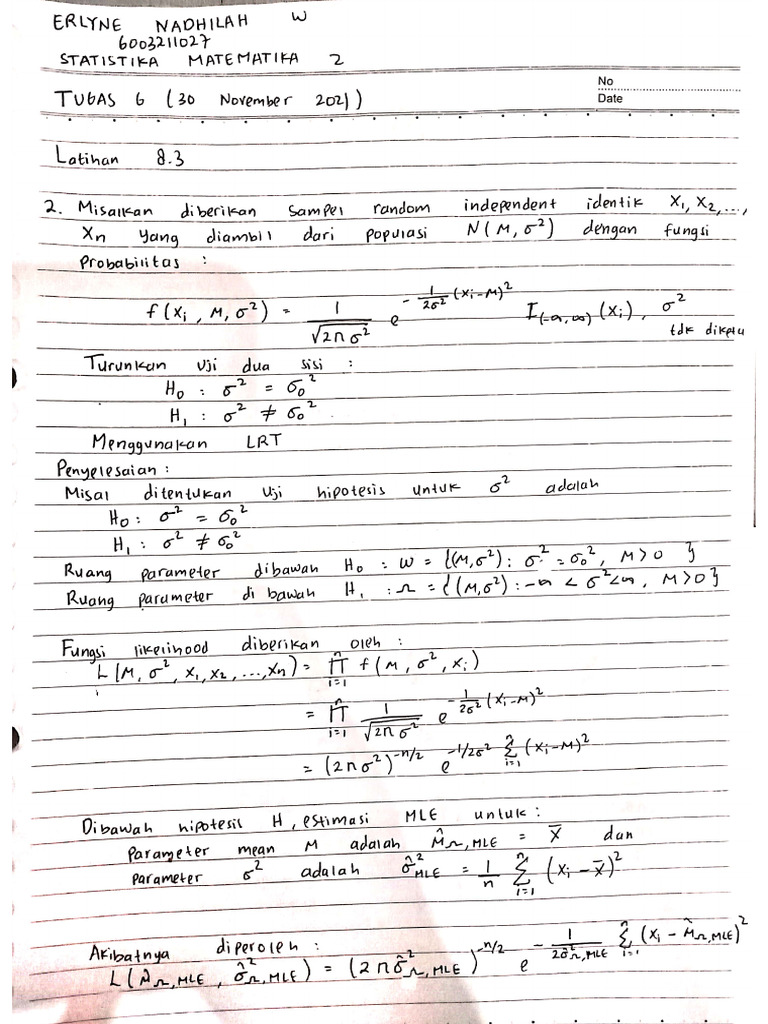 ERLYNE NADHILAH W
6003211027
STATISTIKA MATEMATIKA 2
No
TUGAS 6 (30 November 2021)
Date
Latihan 8.3
2. Misalkan diberikan sampel random independent identik X₁, X₂, ...,
Xn yang diambil dari populasi N(M, σ²) dengan fungsi
Probabilitas :
f(xᵢ, M, σ²) = 1/√(2πσ²) e^(-1/(2σ²) (xᵢ-M)²) I₍₋∞,∞₎(xᵢ), σ²
tdk diketu
Turunkan uji dua sisi :
H₀ : σ² = σ₀²
H₁ : σ² ≠ σ₀²
Menggunakan LRT
Penyelesaian :
Misal ditentukan uji hipotesis untuk σ² adalah
H₀ : σ² = σ₀²
H₁ : σ² ≠ σ₀²
Ruang parameter dibawah H₀ : ω = {(M,σ²) : σ² = σ₀², M>0 }
Ruang parameter di bawah H₁ : Ω = {(M,σ²) : -∞ < σ² < ∞, M>0}
Fungsi likelihood diberikan oleh :
L(M, σ², x₁, x₂, ..., xn) = ∏ᵢ₌₁ⁿ f(M, σ², xᵢ)
= ∏ᵢ₌₁ⁿ 1/√(2πσ²) e^(-1/(2σ²) (xᵢ-M)²)
= (2πσ²)^(-n/2) e^(-1/2σ² ∑ᵢ₌₁ⁿ (xᵢ-M)²)
Dibawah hipotesis H, estimasi MLE untuk :
Parameter mean M adalah M̂_Ω,MLE = X̄ dan
parameter σ² adalah σ̂²_MLE = 1/n ∑ᵢ₌₁ⁿ (xᵢ - x̄)²
Akibatnya diperoleh :
L(M̂_Ω,MLE, σ̂²_Ω,MLE) = (2πσ̂²_Ω,MLE)^(-n/2) e^(-1/(2σ̂²_Ω,MLE) ∑ᵢ₌₁ⁿ (xᵢ - M̂_Ω,MLE)²)